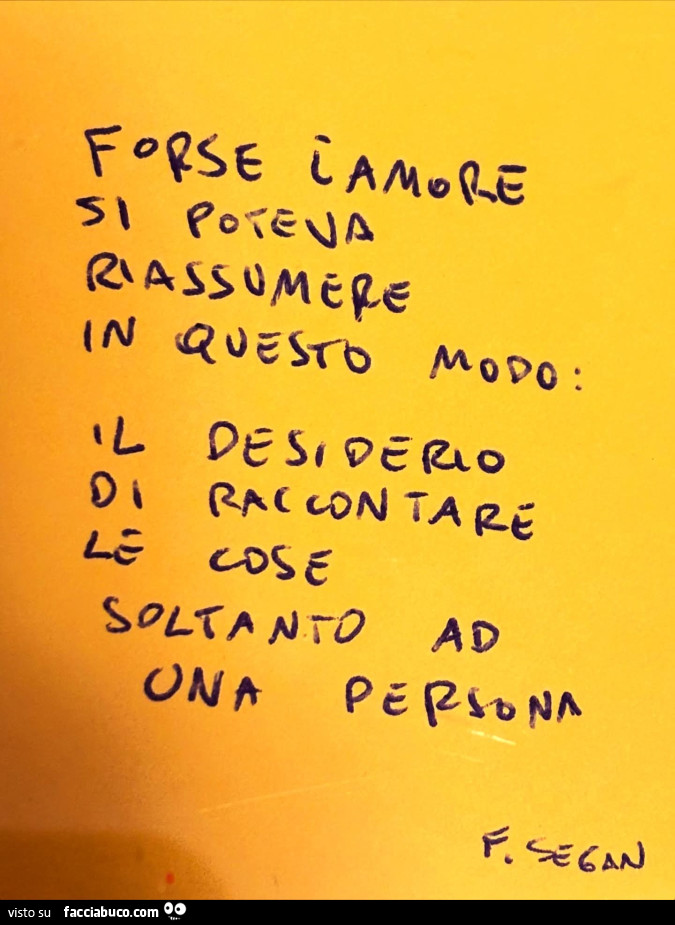 FORSE L'AMORE
SI POTEVA
RIASSUMERE
IN QUESTO MODO:
IL DESIDERIO
DI RACCONTARE
LE COSE
SOLTANTO AD
UNA PERSONA
F. SEGAN
visto su facciabuco.com